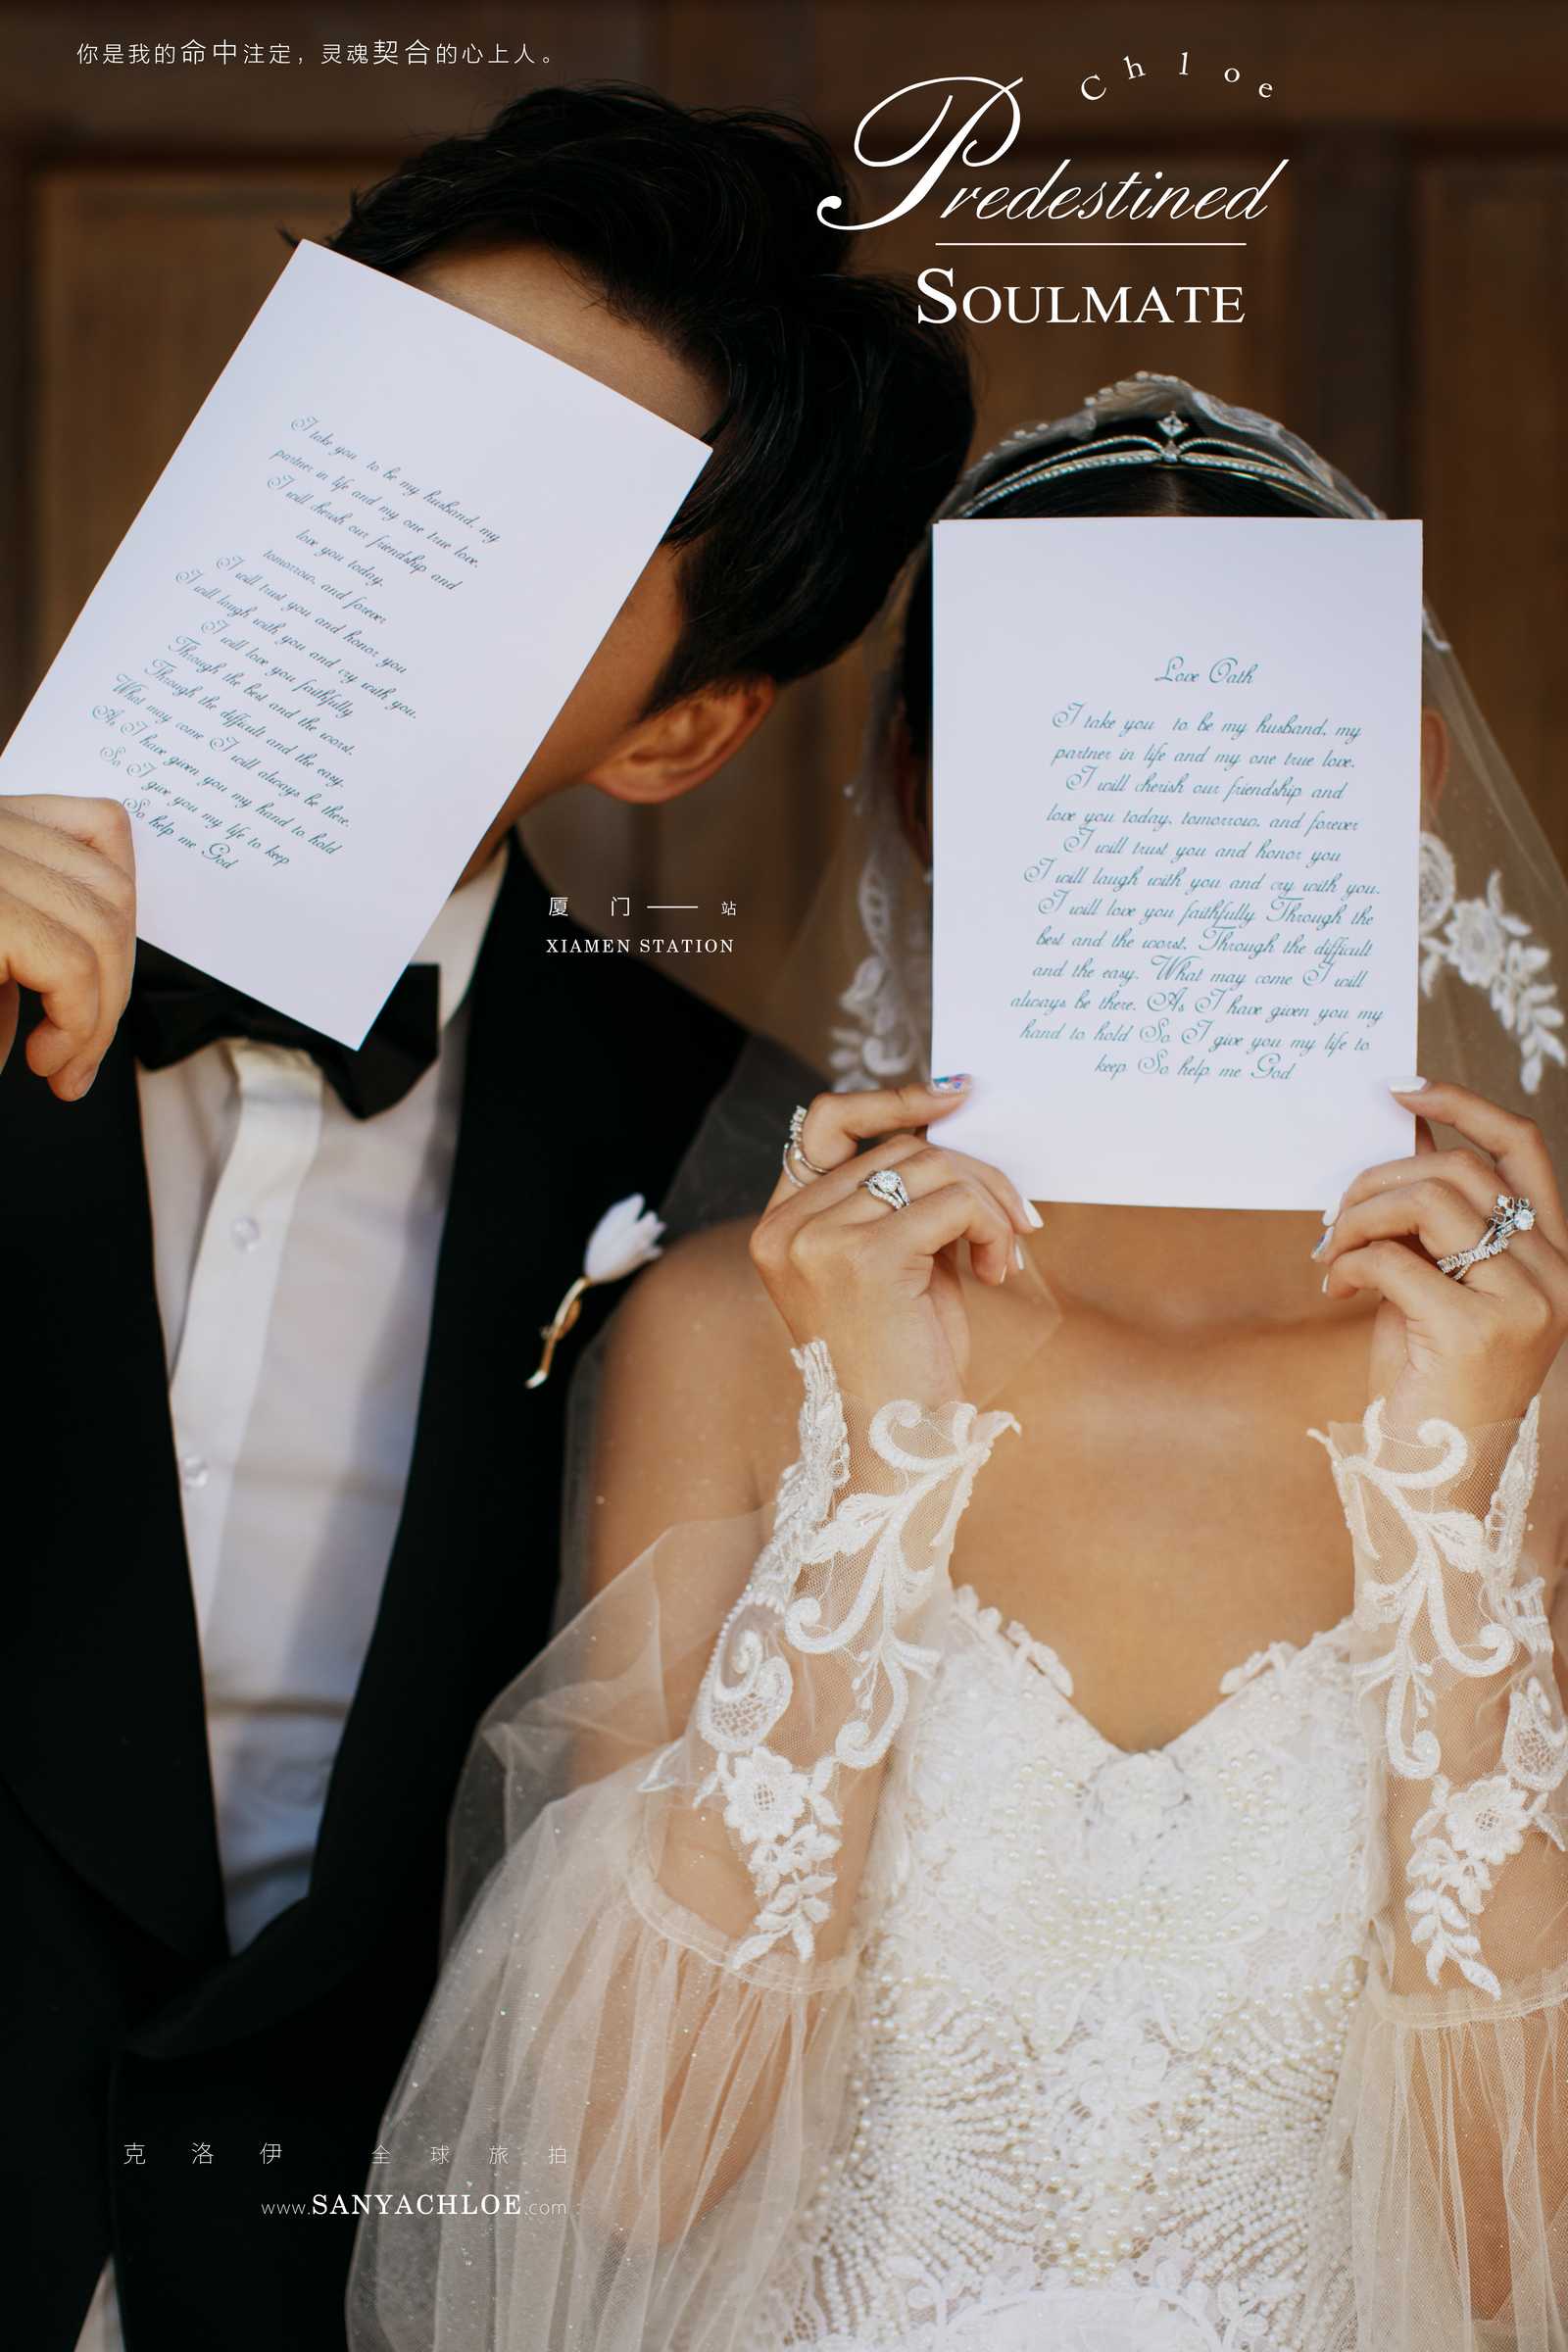 你是我的命中注定，灵魂契合的心上人。
Chloe
Predestined
SOULMATE
I take you to be my husband, my
partner in life and my one true love.
I will cherish our friendship and
love you today,
tomorrow, and forever
I will trust you and honor you
I will laugh with you and cry with you.
I will love you faithfully
Through the best and the worst,
Through the difficult and the easy.
What may come I will always be there.
As I have given you my hand to hold
So I give you my life to keep
So help me God
Love Oath
I take you to be my husband, my
partner in life and my one true love.
I will cherish our friendship and
love you today, tomorrow, and forever
I will trust you and honor you
I will laugh with you and cry with you.
I will love you faithfully Through the
best and the worst, Through the difficult
and the easy. What may come I will
always be there. As I have given you my
hand to hold So I give you my life to
keep So help me God
厦 门 —— 站
XIAMEN STATION
克 洛 伊 全 球 旅 拍
www.SANYACHLOE.com